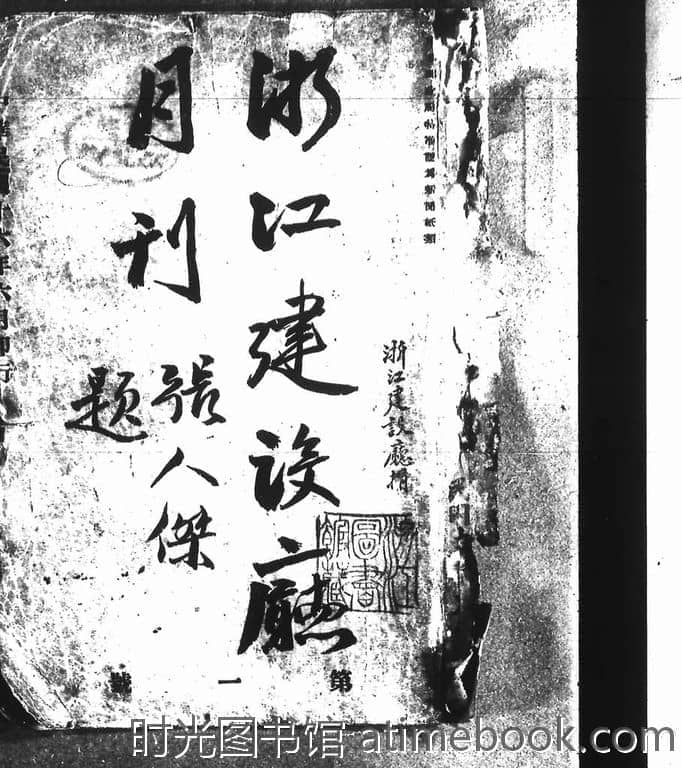 浙江建設廳
月刊
張人傑
題
浙江建設廳捐
第一號
時光图书馆 atimebook.com